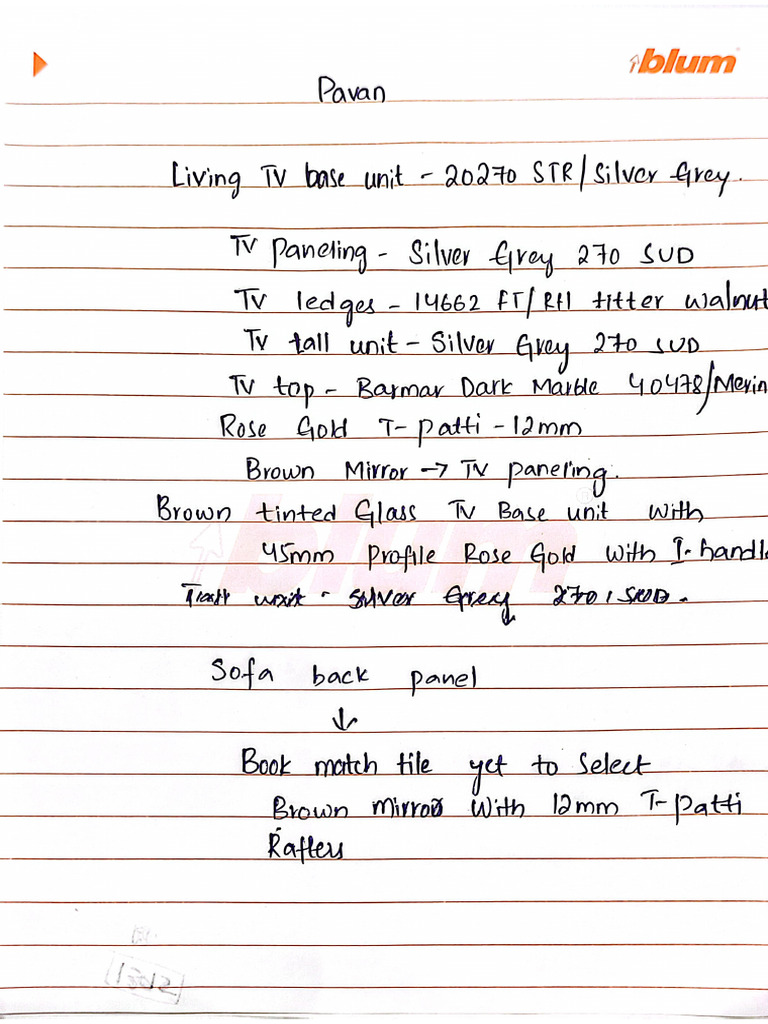 blum
Pavan
Living TV base unit - 20270 STR/Silver Grey.
TV paneling - Silver Grey 270 SUD
TV ledges - 14662 FT/RH titter walnut
TV tall unit - Silver Grey 270 SUD
TV top - Barmar Dark Marble 40478/Merin
Rose Gold T-patti - 12mm
Brown Mirror → TV paneling.
Brown tinted Glass TV Base unit with
45mm profile Rose Gold with I-handl
Tall unit - Silver Grey 270, SUD.
Sofa back panel
↓
Book match tile yet to Select
Brown mirror with 12mm T-patti
Rafters